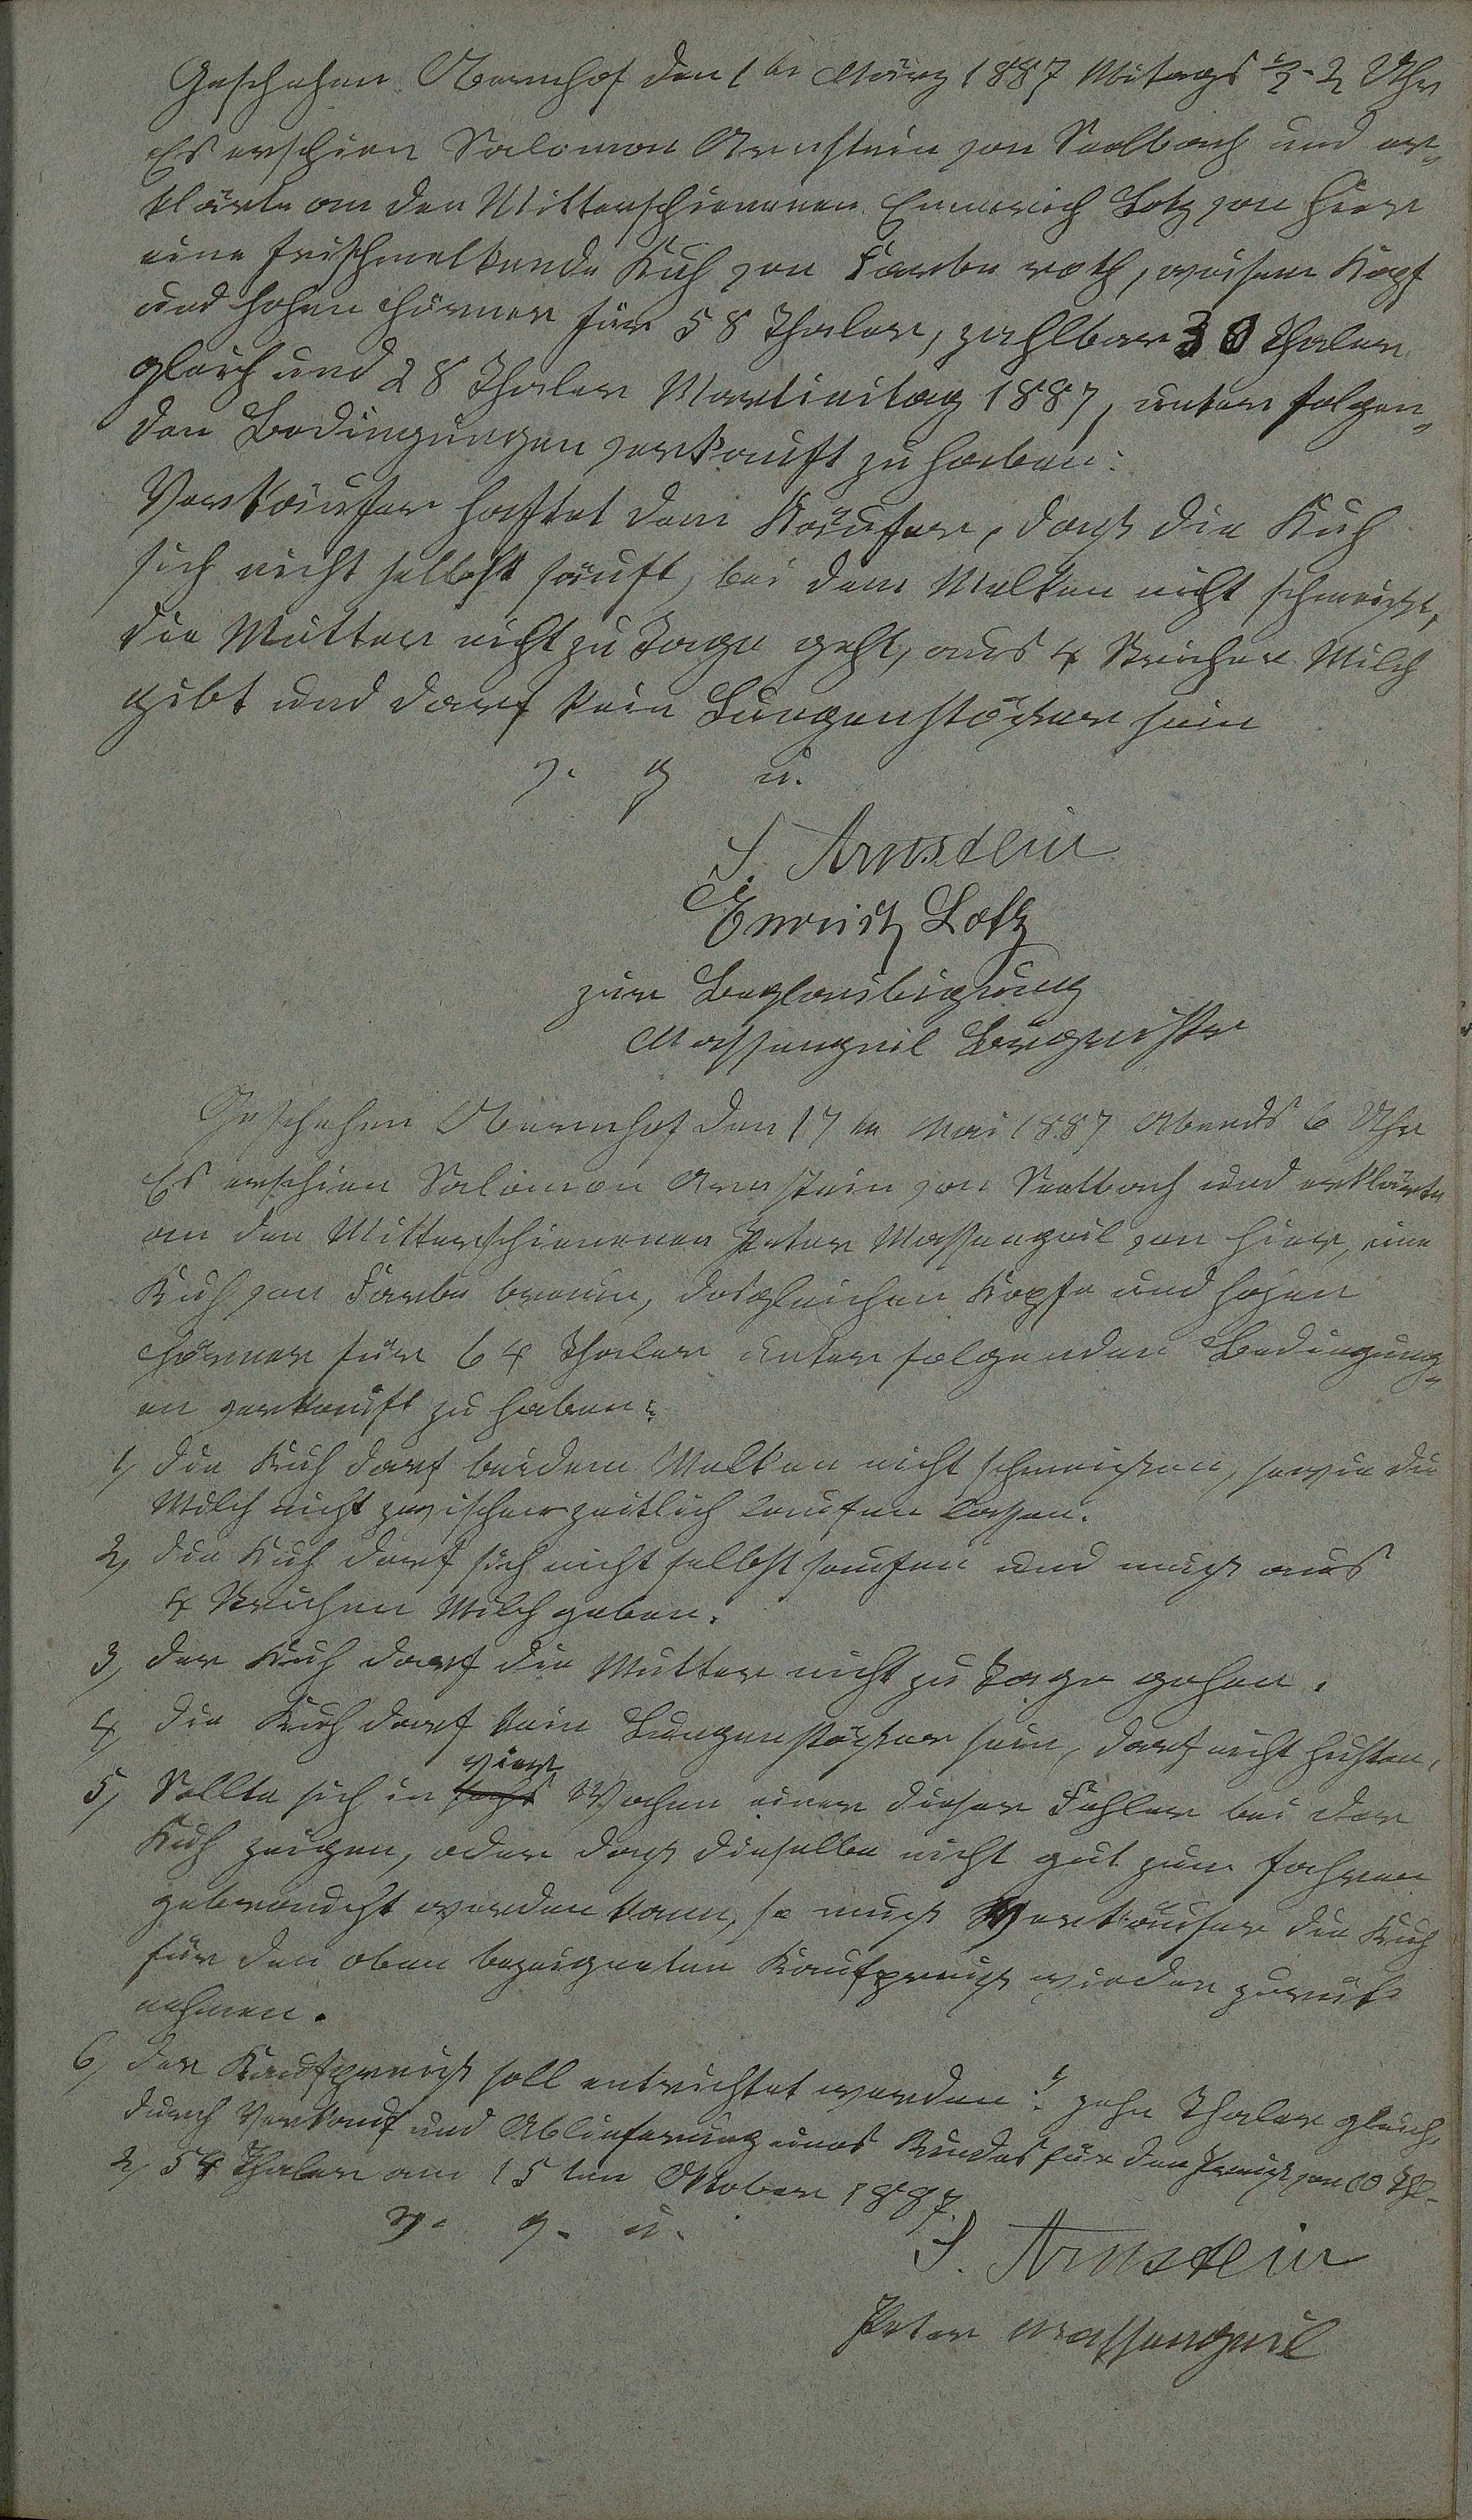 Geschehen Obernhof den 1ten März 1887 Mitags ½ 2 Uhr
Es erschien Salomon Arnstein von Seelbach und er„
klärte an den Mitterschienenen Emmerich Lotz von hier
eine frischmelkende Kuh von Farbe roth, weisem Kopf
und hohen Hörner für 58 Thaler, zahlbar 30 Thaler
gleich und 28 Thaler Martinitag 1887, unter folgen„
den Bedingungen verkauft zu haben:
Verkäufer haftet dem Käufer, daß die Kuh
sich nicht selbst säuft, bei dem Melken nicht schmeißt,
die Mutter nicht zu Tage geht, aus 4 Strichen Milch
gibt und darf kein Lungenstößer sein
v. g u.
S. Arnstein
Emrich Lotz
zur Beglaubigung
Massengeil Bürgmstr
Geschehen Obernhof den 17ten Mai 1887 Abends 6 Uhr
Es erschien Salomon Arnstein von Seelbach und erklärte
an den Mitterschienenen Peter Massengeil von hier, eine
Kuh von Farbe braun, desgleichen Kopfe und hohen
Hörner für 64 Thaler unter folgenden Bedingung„
en verkauft zu haben:
1, die Kuh darf bei dem Melken nicht schmeißen, sowie die
Milch nicht zwischenzeitlich laufen lassen.
2, die Kuh darf sich nicht selbst saufen und muß aus
4 Strichen Milch geben.
3, der Kuh darf die Mutter nicht zu Tage gehen.
4, die Kuh darf kein Lungenstößer sein, darf nicht husten,
vier
5, Sollte sich in sechs Wochen einer dieser Fehler bei der
Kuh zeigen, oder daß dieselbe nicht gut zum fahren
gebraucht werden kann, so muß Verkäufer die Kuh
für den oben bezeigneten Kaufpreiß wieder zurück
nehmen.
6, der Kaufpreiß soll entrichtet werden: 1, zehn Thaler gleich,
durch Verkauf und Ablieferung eines Rindes für den Preiß von 10 Thl.
2, 54 Thaler am 15ten Oktober 1887.
v. g. u.
S. Arnstein
Peter Massengeil